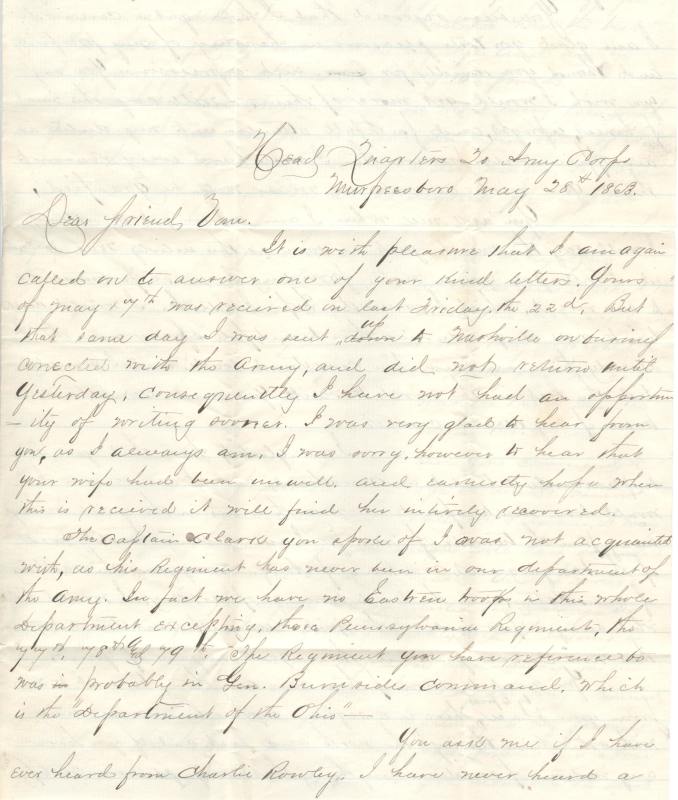 Head Quarters 20 Army Corps
Murfeesboro May 28th 1863.
Dear friend,
It is with pleasure that I am again
called on to answer one of your kind letters. Yours
of May 17th was recieved on last Friday the 22d. But
that same day I was sent up to Nashville on business
conected with the Army, and did not return until
Yesterday, consequently I have not had an opportun
-ity of writing sooner. I was very glad to hear from
you, as I always am, I was sorry, however to hear that
your wife had been unwell and earnestly hope when
this is recieved it will find her intirely recovered.
The Captain Clark you spoke of I was not acquainted
with, as his Regiment has never been in our department of
the Army. In fact we have no Eastren troops in this whole
Department excepting, three Pennsylvania Regiment, the
77th, 78th and 79th. The Regiment you have reference to
was in probably in Gen. Burnsides command, which
is the "Department of the Ohio"—
You ask me if I have
ever heard from Charlie Rowley. I have never heard a